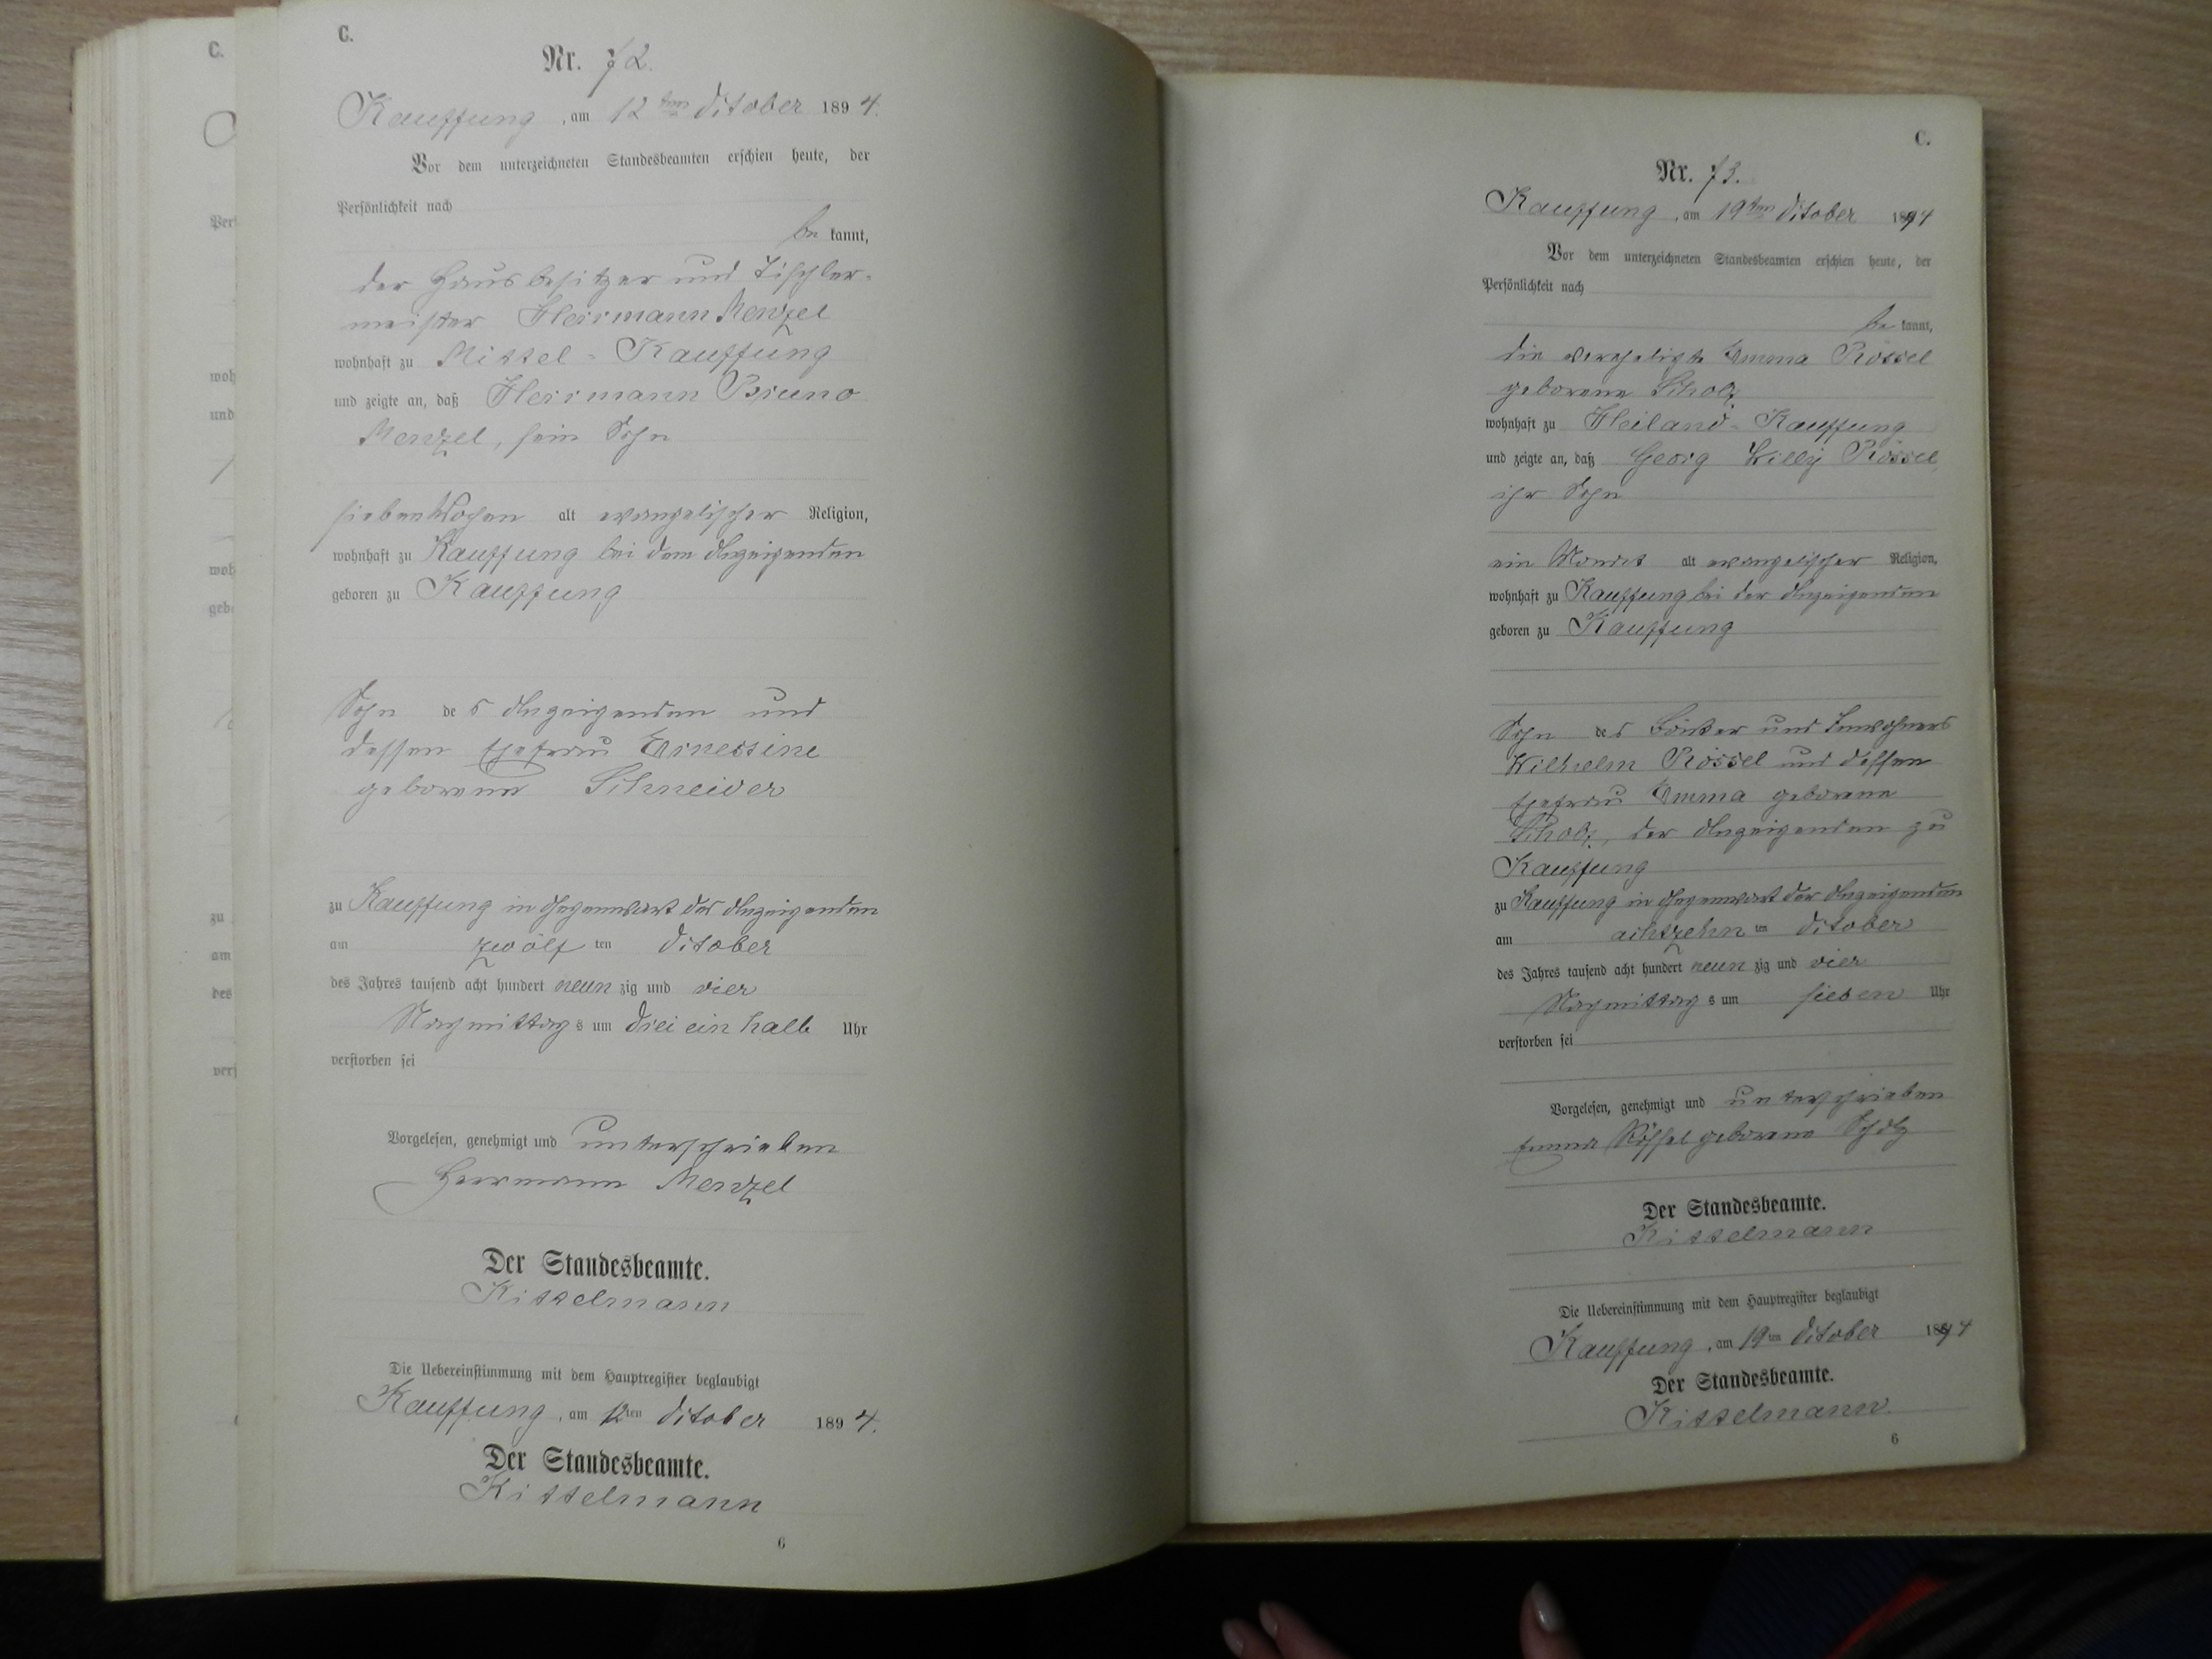 C.
Nr. 72.
Kauffung, am 12ten October 1894.
Vor dem unterzeichneten Standesbeamten erschien heute, der
Persönlichkeit nach
be kannt,
der Hausbesitzer und Tischler-
meister Herrmann Menzel
wohnhaft zu Mittel-Kauffung
und zeigte an, daß Herrmann Bruno
Menzel, sein Sohn
sieben Wochen alt evangelischer Religion,
wohnhaft zu Kauffung bei dem Anzeigenden
geboren zu Kauffung
Sohn des Anzeigenden und
dessen Ehefrau Ernestine
geborene Schneider
zu Kauffung in Gegenwart des Anzeigenden
am zwölf ten October
des Jahres tausend acht hundert neun zig und vier
Nachmittag s um drei ein halb Uhr
verstorben sei
Vorgelesen, genehmigt und unterschrieben
Herrmann Menzel
Der Standesbeamte.
Kittelmann
Die Uebereinstimmung mit dem Hauptregister beglaubigt
Kauffung, am 12ten October 1894.
Der Standesbeamte.
Kittelmann
6
C.
Nr. 73.
Kauffung, am 19ten October 1894
Vor dem unterzeichneten Standesbeamten erschien heute, der
Persönlichkeit nach
be kannt,
die verehelichte Emma Rössel
geborene Scholz
wohnhaft zu Heiland-Kauffung
und zeigte an, daß Georg Willy Rössel,
ihr Sohn
ein Monat alt evangelischer Religion,
wohnhaft zu Kauffung bei der Anzeigenden
geboren zu Kauffung
Sohn des und Inwohners
Wilhelm Rössel und dessen
Ehefrau Emma geborene
Scholz, der Anzeigenden zu
Kauffung
zu Kauffung in Gegenwart der Anzeigenden
am achtzehn ten October
des Jahres tausend acht hundert neun zig und vier
Nachmittag s um sieben Uhr
verstorben sei
Vorgelesen, genehmigt und unterschrieben
Emma Rössel geborene Scholz
Der Standesbeamte.
Kittelmann
Die Uebereinstimmung mit dem Hauptregister beglaubigt
Kauffung, am 19ten October 1894
Der Standesbeamte.
Kittelmann
6